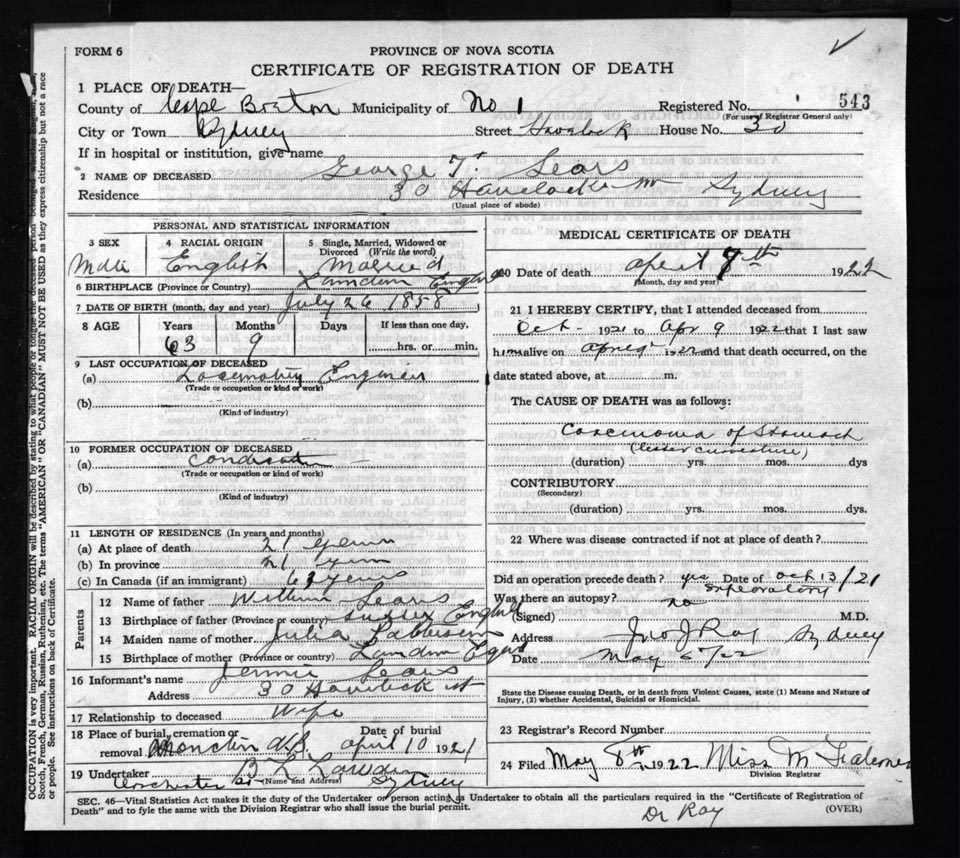 FORM 6
PROVINCE OF NOVA SCOTIA
CERTIFICATE OF REGISTRATION OF DEATH
543
1 PLACE OF DEATH—
County of Cape Breton Municipality of No 1 Registered No.
(For use of Registrar General only)
City or Town Sydney Street Havelock House No. 30
If in hospital or institution, give name
2 NAME OF DECEASED George T. Sears
Residence 30 Havelock Sydney
(Usual place of abode)
PERSONAL AND STATISTICAL INFORMATION
3 SEX 4 RACIAL ORIGIN 5 Single, Married, Widowed or Divorced (Write the word)
Male English Married
6 BIRTHPLACE (Province or Country) England
7 DATE OF BIRTH (month, day and year) July 26 1858
8 AGE Years Months Days If less than one day,
63 9 hrs. or min.
9 LAST OCCUPATION OF DECEASED
(a) Engineer
(Trade or occupation or kind of work)
(b)
(Kind of industry)
10 FORMER OCCUPATION OF DECEASED
(a)
(Trade or occupation or kind of work)
(b)
(Kind of industry)
11 LENGTH OF RESIDENCE (In years and months)
(a) At place of death 21 years
(b) In province 21 years
(c) In Canada (if an immigrant) years
Parents
12 Name of father William Sears
13 Birthplace of father (Province or country) England
14 Maiden name of mother Julia
15 Birthplace of mother (Province or country)
16 Informant's name Jennie Sears
Address 30 Havelock st
17 Relationship to deceased Wife
18 Place of burial, cremation or removal Moncton N.B. Date of burial April 10 1921
19 Undertaker B L
(Name and Address) Sydney
MEDICAL CERTIFICATE OF DEATH
20 Date of death April 9th 1922
(Month, day and year)
21 I HEREBY CERTIFY, that I attended deceased from
Oct - 1921 to Apr 9 1922 that I last saw
him alive on April 9 1922 and that death occurred, on the
date stated above, at m.
The CAUSE OF DEATH was as follows:
Carcinoma of Stomach
(lesser curvature)
(duration) yrs. mos. dys
CONTRIBUTORY
(Secondary)
(duration) yrs. mos. dys.
22 Where was disease contracted if not at place of death?
Did an operation precede death? yes Date of Oct 13/21
Exploratory
Was there an autopsy? no
(Signed) Jno J Roy M.D.
Address Sydney
Date May 22
State the Disease causing Death, or in death from Violent Causes, state (1) Means and Nature of
Injury, (2) whether Accidental, Suicidal or Homicidal.
23 Registrar's Record Number
24 Filed May 8th 1922 Miss M
Division Registrar
SEC. 46—Vital Statistics Act makes it the duty of the Undertaker or person acting as Undertaker to obtain all the particulars required in the "Certificate of Registration of
Death" and to fyle the same with the Division Registrar who shall issue the burial permit.
(OVER)
Dr Roy
OCCUPATION is very important. RACIAL ORIGIN will be described by stating to what people or
The terms "AMERICAN" OR "CANADIAN" MUST NOT BE USED as they express citizenship but not a race
or people. See instructions on back of Certificate.